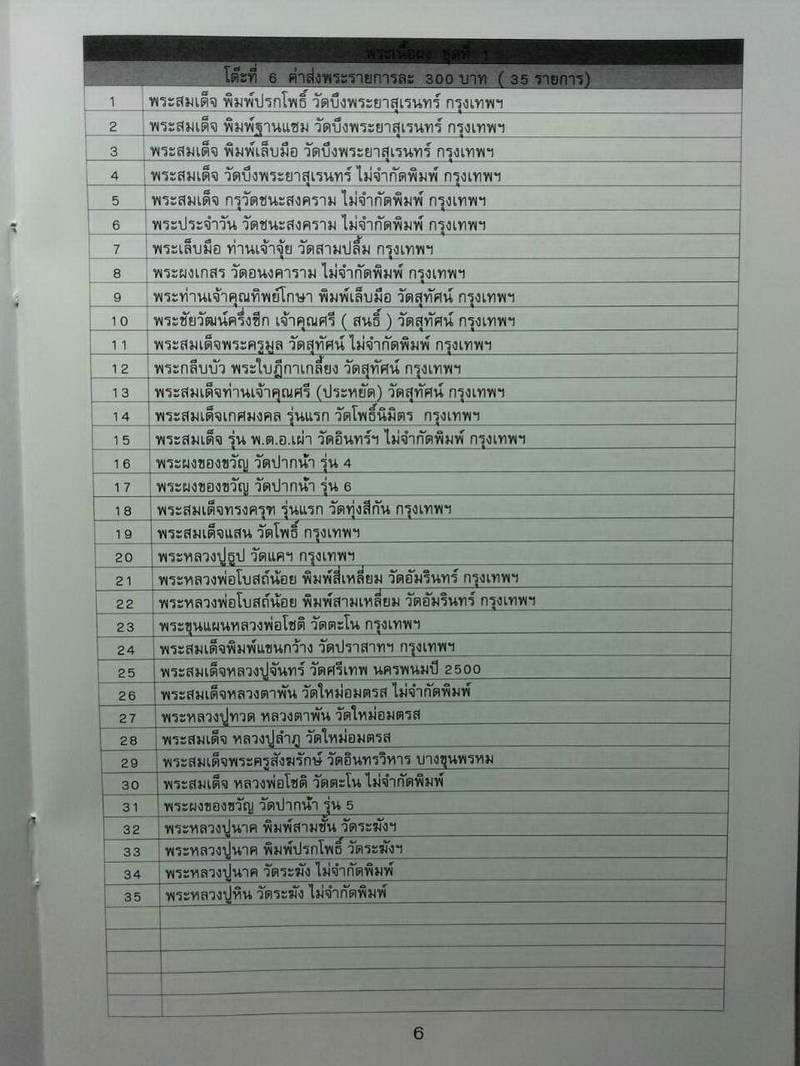 พระเนื้อผง ชุดที่ 1
โต๊ะที่ 6 ค่าส่งพระรายการละ 300 บาท ( 35 รายการ)
1 พระสมเด็จ พิมพ์ปรกโพธิ์ วัดบึงพระยาสุเรนทร์ กรุงเทพฯ
2 พระสมเด็จ พิมพ์ฐานแซม วัดบึงพระยาสุเรนทร์ กรุงเทพฯ
3 พระสมเด็จ พิมพ์เล็บมือ วัดบึงพระยาสุเรนทร์ กรุงเทพฯ
4 พระสมเด็จ วัดบึงพระยาสุเรนทร์ ไม่จำกัดพิมพ์ กรุงเทพฯ
5 พระสมเด็จ กรุวัดชนะสงคราม ไม่จำกัดพิมพ์ กรุงเทพฯ
6 พระประจำวัน วัดชนะสงคราม ไม่จำกัดพิมพ์ กรุงเทพฯ
7 พระเล็บมือ ท่านเจ้าจุ้ย วัดสามปลื้ม กรุงเทพฯ
8 พระผงเกสร วัดอนงคาราม ไม่จำกัดพิมพ์ กรุงเทพฯ
9 พระท่านเจ้าคุณทิพย์โกษา พิมพ์เล็บมือ วัดสุทัศน์ กรุงเทพฯ
10 พระชัยวัฒน์ครึ่งซีก เจ้าคุณศรี ( สนธิ์ ) วัดสุทัศน์ กรุงเทพฯ
11 พระสมเด็จพระครูมูล วัดสุทัศน์ ไม่จำกัดพิมพ์ กรุงเทพฯ
12 พระกลีบบัว พระใบฎีกาเกลี้ยง วัดสุทัศน์ กรุงเทพฯ
13 พระสมเด็จท่านเจ้าคุณศรี (ประหยัด) วัดสุทัศน์ กรุงเทพฯ
14 พระสมเด็จเกศมงคล รุ่นแรก วัดโพธิ์นิมิตร กรุงเทพฯ
15 พระสมเด็จ รุ่น พ.ต.อ.เผ่า วัดอินทร์ฯ ไม่จำกัดพิมพ์ กรุงเทพฯ
16 พระผงของขวัญ วัดปากน้ำ รุ่น 4
17 พระผงของขวัญ วัดปากน้ำ รุ่น 6
18 พระสมเด็จทรงครุฑ รุ่นแรก วัดทุ่งสีกัน กรุงเทพฯ
19 พระสมเด็จแสน วัดโพธิ์ กรุงเทพฯ
20 พระหลวงปู่ธูป วัดแคฯ กรุงเทพฯ
21 พระหลวงพ่อโบสถ์น้อย พิมพ์สี่เหลี่ยม วัดอัมรินทร์ กรุงเทพฯ
22 พระหลวงพ่อโบสถ์น้อย พิมพ์สามเหลี่ยม วัดอัมรินทร์ กรุงเทพฯ
23 พระขุนแผนหลวงพ่อโชติ วัดตะโน กรุงเทพฯ
24 พระสมเด็จพิมพ์แขนกว้าง วัดปราสาทฯ กรุงเทพฯ
25 พระสมเด็จหลวงปู่จันทร์ วัดศรีเทพ นครพนมปี 2500
26 พระสมเด็จหลวงตาพัน วัดใหม่อมตรส ไม่จำกัดพิมพ์
27 พระหลวงปู่ทวด หลวงตาพัน วัดใหม่อมตรส
28 พระสมเด็จ หลวงปู่ลำภู วัดใหม่อมตรส
29 พระสมเด็จพระครูสังฆรักษ์ วัดอินทรวิหาร บางขุนพรหม
30 พระสมเด็จ หลวงพ่อโชติ วัดตะโน ไม่จำกัดพิมพ์
31 พระผงของขวัญ วัดปากน้ำ รุ่น 5
32 พระหลวงปู่นาค พิมพ์สามชั้น วัดระฆังฯ
33 พระหลวงปู่นาค พิมพ์ปรกโพธิ์ วัดระฆังฯ
34 พระหลวงปู่นาค วัดระฆัง ไม่จำกัดพิมพ์
35 พระหลวงปู่หิน วัดระฆัง ไม่จำกัดพิมพ์
6